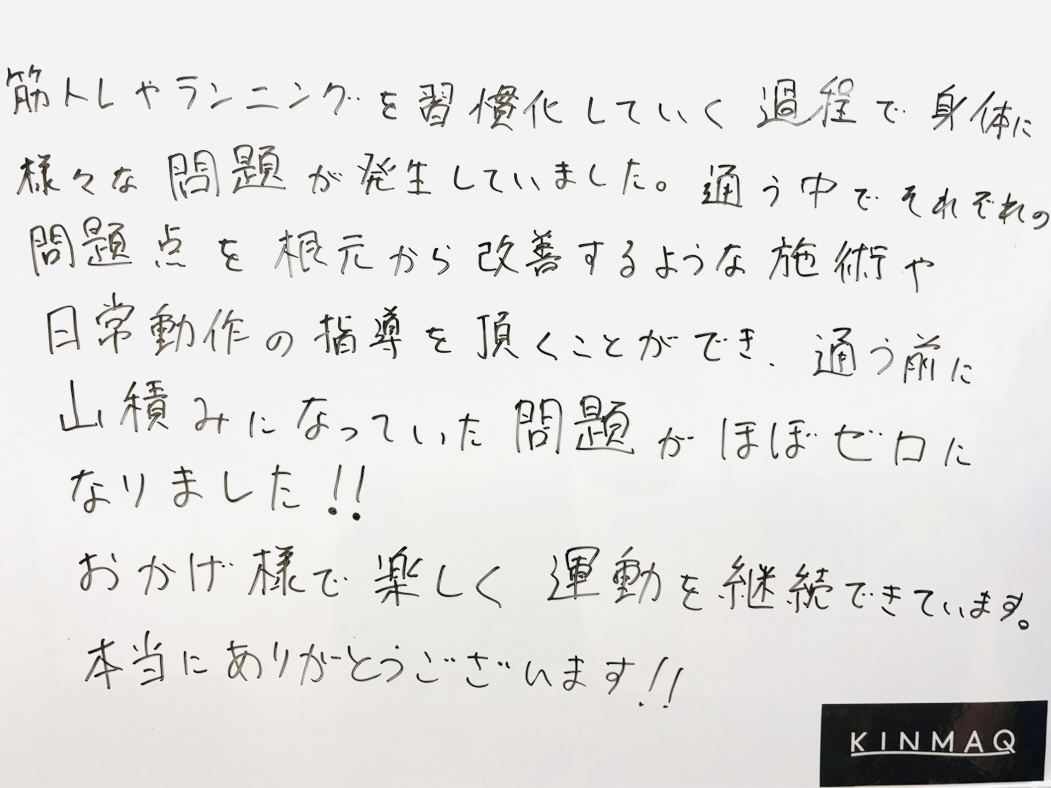 筋トレやランニングを習慣化していく過程で身体に
様々な問題が発生していました。通う中でそれぞれの
問題点を根元から改善するような施術や
日常動作の指導を頂くことができ、通う前に
山積みになっていた問題がほぼゼロに
なりました!!
おかげ様で楽しく運動を継続できています。
本当にありがとうございます!!
KINMAQ